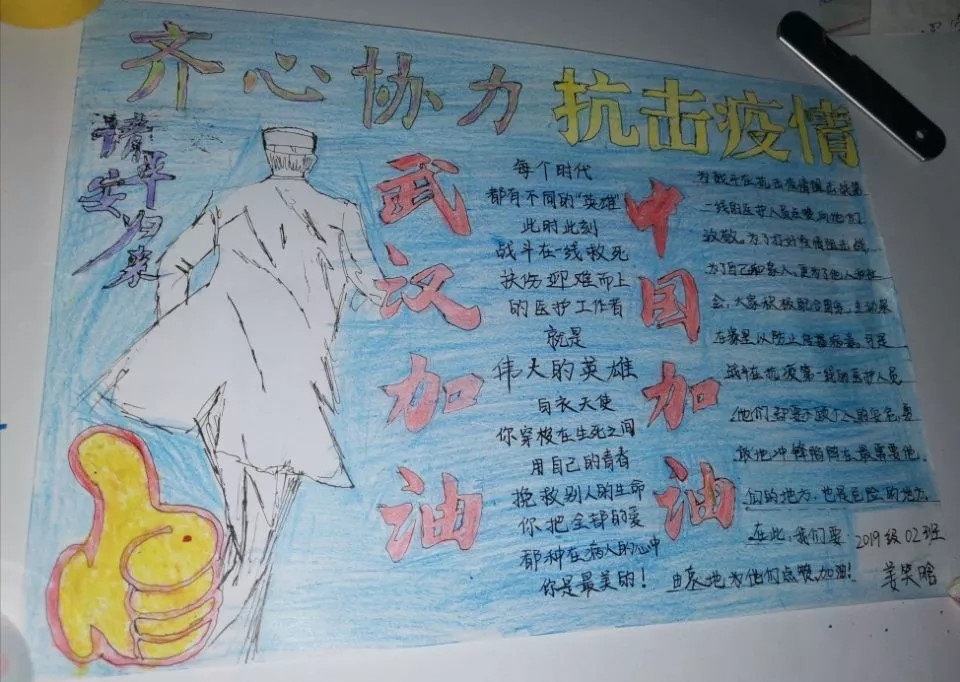 齐心协力 抗击疫情
请平安归来
武汉加油
每个时代
都有不同的"英雄"
此时此刻
战斗在一线救死
扶伤迎难而上
的医护工作者
就是
伟大的英雄
白衣天使
你穿梭在生死之间
用自己的青春
挽救别人的生命
你把全部的爱
都种在病人的心中
你是最美的！
中国加油
为敢于在抗击疫情阻击战第
一线的医护人员点赞,向他们
致敬。为了打好疫情阻击战,
为了自己和家人,更为了他人和社
会,大家积极配合国家,主动呆
在家里以防止
战斗在抗疫第一线的医护人员
他们
地冲锋陷阵在最需要他
们的地方,也是危险的地方。
在此,我们要
地为他们点赞,加油!
2019级02班
姜笑晗